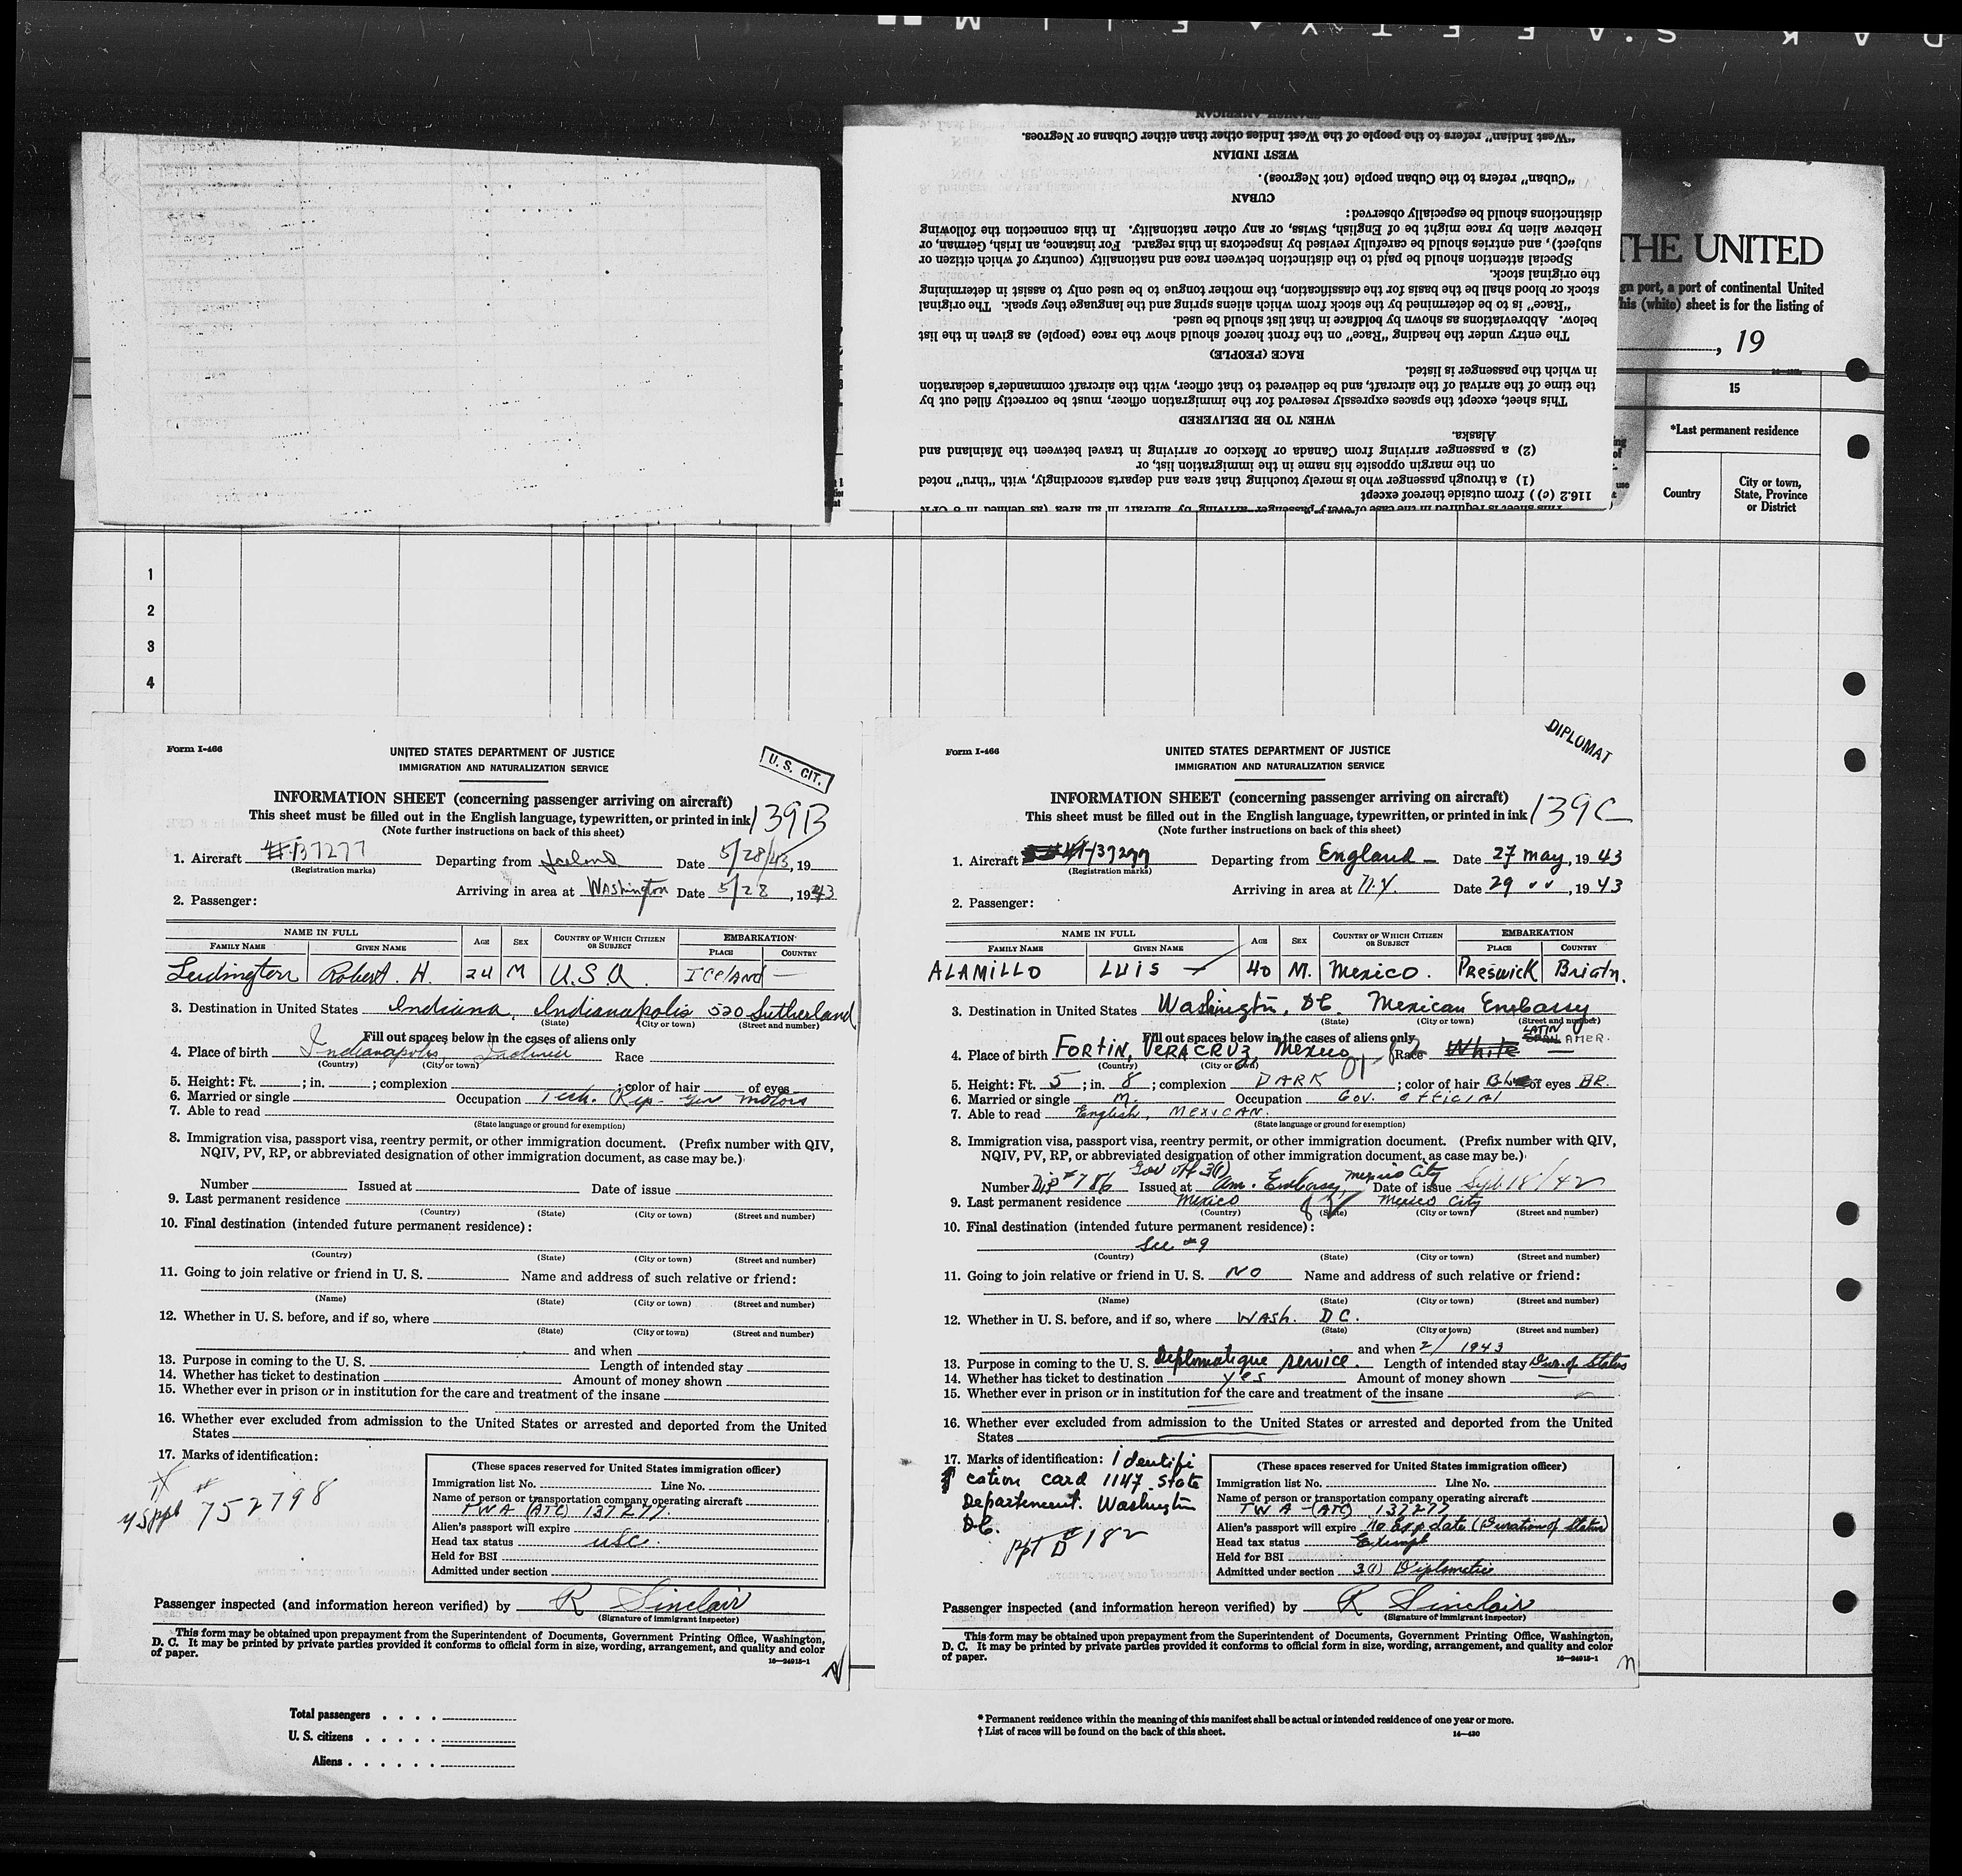 "West Indian" refers to the people of the West Indies other than either Cubans or Negroes.
WEST INDIAN
"Cuban" refers to the Cuban people (not Negroes).
CUBAN
distinctions should be especially observed:
Hebrew alien by race might be of English, Swiss, or any other nationality. In this connection the following
subject), and entries should be carefully revised by inspectors in this regard. For instance, an Irish, German, or
Special attention should be paid to the distinction between race and nationality (country of which citizen or
the original stock.
stock or blood shall be the basis for the classification, the mother tongue to be used only to assist in determining
"Race" is to be determined by the stock from which aliens spring and the language they speak. The original
below. Abbreviations as shown by boldface in that list should be used.
The entry under the heading "Race" on the front hereof should show the race (people) as given in the list
RACE (PEOPLE)
in which the passenger is listed.
the time of the arrival of the aircraft, and be delivered to that officer, with the aircraft commander's declaration
This sheet, except the spaces expressly reserved for the immigration officer, must be correctly filled out by
WHEN TO BE DELIVERED
Alaska.
(2) a passenger arriving from Canada or Mexico or arriving in travel between the Mainland and
on the margin opposite his name in the immigration list, or
(1) a through passenger who is merely touching that area and departs accordingly, with "thru" noted
116.2 (c)) from outside thereof except
This sheet is required in the case of every passenger arriving by aircraft in an area (as defined in 8 CFR
THE UNITED
gn port, a port of continental United
This (white) sheet is for the listing of
, 19
15
*Last permanent residence
Country
City or town,
State, Province
or District
1
2
3
4
Form I-466
UNITED STATES DEPARTMENT OF JUSTICE
IMMIGRATION AND NATURALIZATION SERVICE
U. S. CIT.
INFORMATION SHEET (concerning passenger arriving on aircraft)
This sheet must be filled out in the English language, typewritten, or printed in ink 139B
(Note further instructions on back of this sheet)
1. Aircraft #137277 Departing from Iceland Date 5/28/43, 19
(Registration marks)
Arriving in area at Washington Date 5/28, 1943
2. Passenger:
NAME IN FULL AGE SEX COUNTRY OF WHICH CITIZEN OR SUBJECT EMBARKATION
FAMILY NAME GIVEN NAME PLACE COUNTRY
Ludington Robert. H. 24 M U.S.A. ICELAND —
3. Destination in United States Indiana, Indianapolis 520 Sutherland
(State) (City or town) (Street and number)
Fill out spaces below in the cases of aliens only
4. Place of birth Indianapolis, Indiana Race
(Country) (City or town)
5. Height: Ft. ; in. ; complexion ; color of hair of eyes
6. Married or single Occupation Tech. Rep- Gen motors
7. Able to read
(State language or ground for exemption)
8. Immigration visa, passport visa, reentry permit, or other immigration document. (Prefix number with QIV,
NQIV, PV, RP, or abbreviated designation of other immigration document, as case may be.)
Number Issued at Date of issue
9. Last permanent residence
(Country) (State) (City or town) (Street and number)
10. Final destination (intended future permanent residence):
(Country) (State) (City or town) (Street and number)
11. Going to join relative or friend in U. S. Name and address of such relative or friend:
(Name) (State) (City or town) (Street and number)
12. Whether in U. S. before, and if so, where
(State) (City or town) (Street and number)
and when
13. Purpose in coming to the U. S. Length of intended stay
14. Whether has ticket to destination Amount of money shown
15. Whether ever in prison or in institution for the care and treatment of the insane
16. Whether ever excluded from admission to the United States or arrested and deported from the United
States
17. Marks of identification:
USppt #752798
(These spaces reserved for United States immigration officer)
Immigration list No. Line No.
Name of person or transportation company operating aircraft
TWA (ATC) 137277.
Alien's passport will expire
Head tax status usc.
Held for BSI
Admitted under section
Passenger inspected (and information hereon verified) by R Sinclair
(Signature of immigrant inspector)
This form may be obtained upon prepayment from the Superintendent of Documents, Government Printing Office, Washington,
D. C. It may be printed by private parties provided it conforms to official form in size, wording, arrangement, and quality and color
of paper.
16—24915-1
Form I-466
UNITED STATES DEPARTMENT OF JUSTICE
IMMIGRATION AND NATURALIZATION SERVICE
DIPLOMAT
INFORMATION SHEET (concerning passenger arriving on aircraft)
This sheet must be filled out in the English language, typewritten, or printed in ink 139C
(Note further instructions on back of this sheet)
1. Aircraft 137277 Departing from England — Date 27 may, 1943
(Registration marks)
Arriving in area at N.Y. Date 29 " ", 1943
2. Passenger:
NAME IN FULL AGE SEX COUNTRY OF WHICH CITIZEN OR SUBJECT EMBARKATION
FAMILY NAME GIVEN NAME PLACE COUNTRY
ALAMILLO LUIS 40 M. Mexico. PRESWICK Briatn.
3. Destination in United States Washington, DC. Mexican Embassy
(State) (City or town) (Street and number)
Fill out spaces below in the cases of aliens only
LATIN
4. Place of birth FORTIN, VERACRUZ, Mexico Race White SPAN AMER.
(Country) (City or town)
5. Height: Ft. 5 ; in. 8 ; complexion DARK ; color of hair of eyes BR.
6. Married or single M. Occupation Gov. official
7. Able to read English, MEXICAN.
(State language or ground for exemption)
8. Immigration visa, passport visa, reentry permit, or other immigration document. (Prefix number with QIV,
NQIV, PV, RP, or abbreviated designation of other immigration document, as case may be.)
Gov off 3(1)
Number Dip #786 Issued at Am. Embassy, Mexico City Date of issue Sept 18/42
9. Last permanent residence Mexico Mexico City
(Country) (State) (City or town) (Street and number)
10. Final destination (intended future permanent residence):
See #9
(Country) (State) (City or town) (Street and number)
11. Going to join relative or friend in U. S. NO Name and address of such relative or friend:
(Name) (State) (City or town) (Street and number)
12. Whether in U. S. before, and if so, where WASH. DC.
(State) (City or town) (Street and number)
and when 2/ 1943
13. Purpose in coming to the U. S. Deplomatique service. Length of intended stay Dur. of Status
14. Whether has ticket to destination yes Amount of money shown —
15. Whether ever in prison or in institution for the care and treatment of the insane
16. Whether ever excluded from admission to the United States or arrested and deported from the United
States
17. Marks of identification: identifi
cation card 1147 State
Departement. Washington
DC.
ppt D #182
(These spaces reserved for United States immigration officer)
Immigration list No. Line No.
Name of person or transportation company operating aircraft
TWA-(ATC) 137277
Alien's passport will expire no Exp date (Duration of Status)
Head tax status Exempt
Held for BSI
Admitted under section 3(1) Diplomatic
Passenger inspected (and information hereon verified) by R Sinclair
(Signature of immigrant inspector)
This form may be obtained upon prepayment from the Superintendent of Documents, Government Printing Office, Washington,
D. C. It may be printed by private parties provided it conforms to official form in size, wording, arrangement, and quality and color
of paper.
16—24915-1
Total passengers . . . .
U. S. citizens . . . . .
Aliens . . . . . .
* Permanent residence within the meaning of this manifest shall be actual or intended residence of one year or more.
† List of races will be found on the back of this sheet.